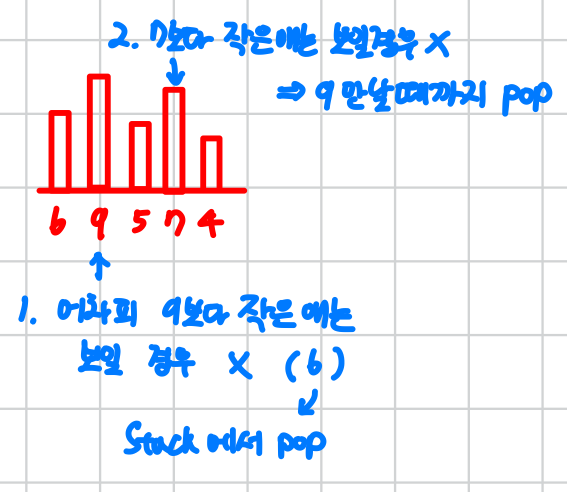 2. 7보다 작은애는 보일경우 X
⇒ 9 만날때까지 pop
6 9 5 7 4
1. 어차피 9보다 작은 애는
보일 경우 X (6)
Stack에서 pop